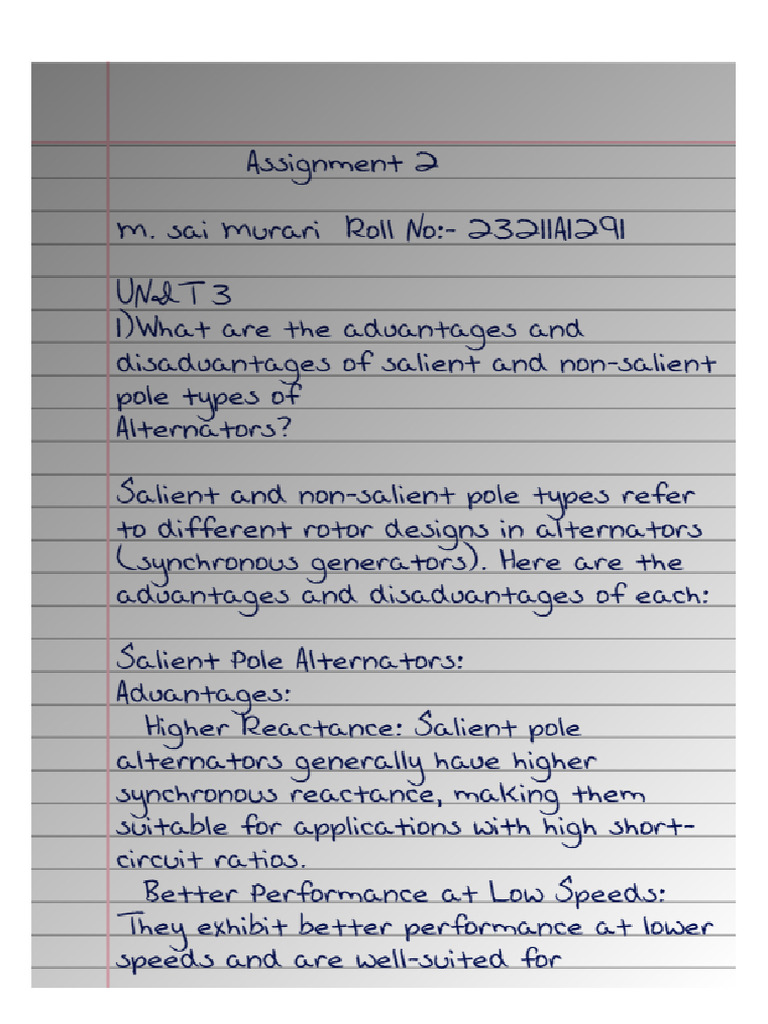 Assignment 2
M. Sai Murari Roll No:- 23211A1291
UNIT 3
1)What are the advantages and
disadvantages of salient and non-salient
pole types of
Alternators?
Salient and non-salient pole types refer
to different rotor designs in alternators
(synchronous generators). Here are the
advantages and disadvantages of each:
Salient Pole Alternators:
Advantages:
Higher Reactance: Salient pole
alternators generally have higher
synchronous reactance, making them
suitable for applications with high short-
circuit ratios.
Better Performance at Low Speeds:
They exhibit better performance at lower
speeds and are well-suited for